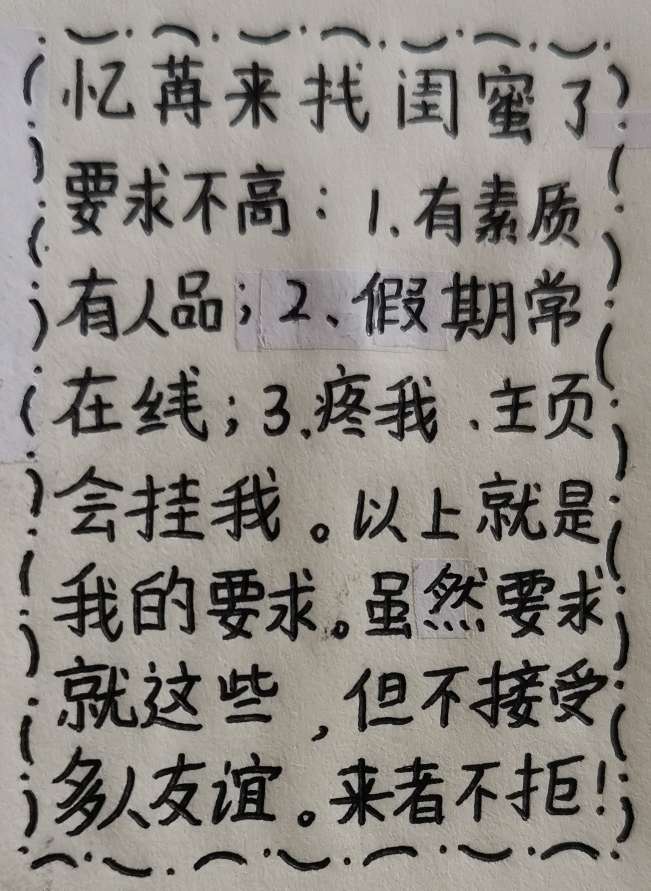 忆苒来找闺蜜了
要求不高：1.有素质
有人品；2、假期常
在线；3.疼我、主页
会挂我。以上就是
我的要求。虽然要求
就这些，但不接受
多人友谊。来者不拒！